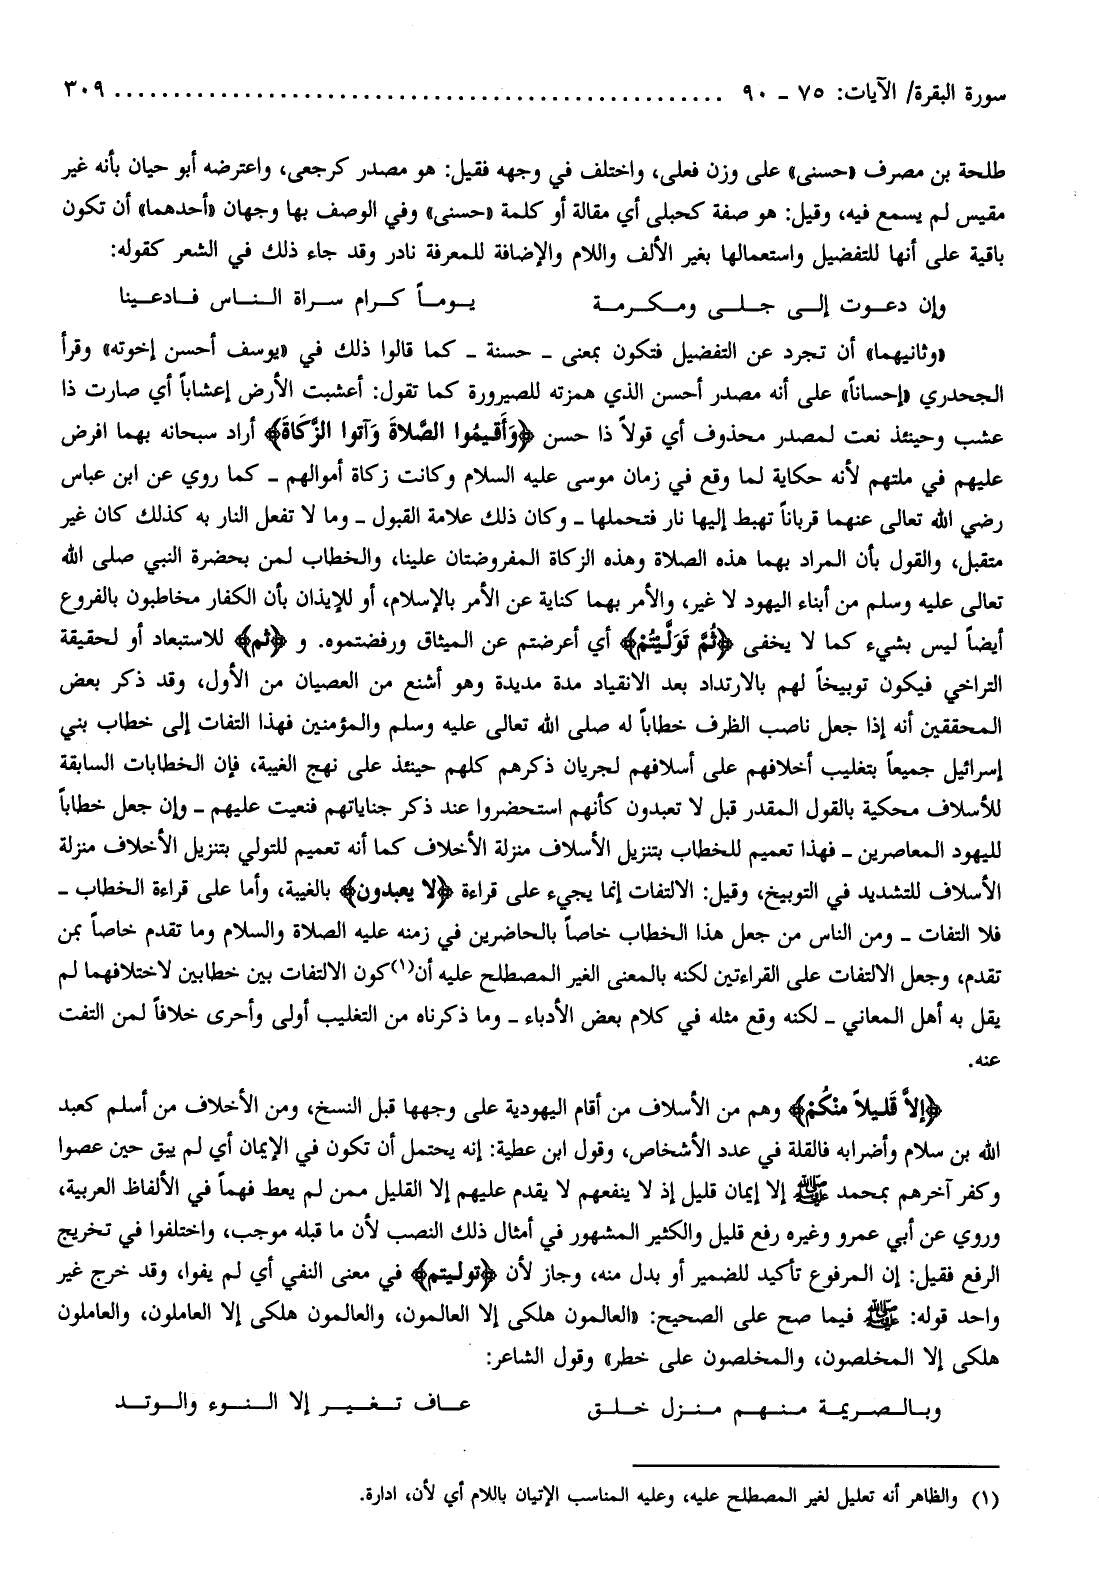 سورة البقرة/ الآيات: ٧٥ ـ ٩٠ .................................................... ٣٠٩
طلحة بن مصرف «حسنى» على وزن فعلى، واختلف في وجهه فقيل: هو مصدر كرجعى، واعترضه أبو حيان بأنه غير
مقيس لم يسمع فيه، وقيل: هو صفة كحبلى أي مقالة أو كلمة «حسنى» وفي الوصف بها وجهان «أحدهما» أن تكون
باقية على أنها للتفضيل واستعمالها بغير الألف واللام والإضافة للمعرفة نادر وقد جاء ذلك في الشعر كقوله:
وإن دعـوت إلـى جـلـى ومـكـرمة يـومـاً كـرام سـراة الـنـاس فـادعـينا
«وثانيهما» أن تجرد عن التفضيل فتكون بمعنى ـ حسنة ـ كما قالوا ذلك في «يوسف أحسن إخوته» وقرأ
الجحدري «إحساناً» على أنه مصدر أحسن الذي همزته للصيرورة كما تقول: أعشبت الأرض إعشاباً أي صارت ذا
عشب وحينئذ نعت لمصدر محذوف أي قولاً ذا حسن ﴿وَأَقِيمُوا الصَّلاةَ وَآتوا الزَّكَاةَ﴾ أراد سبحانه بهما افرض
عليهم في ملتهم لأنه حكاية لما وقع في زمان موسى عليه السلام وكانت زكاة أموالهم ـ كما روي عن ابن عباس
رضي الله تعالى عنهما قرباناً تهبط إليها نار فتحملها ـ وكان ذلك علامة القبول ـ وما لا تفعل النار به كذلك كان غير
متقبل، والقول بأن المراد بهما هذه الصلاة وهذه الزكاة المفروضتان علينا، والخطاب لمن بحضرة النبي صلى الله
تعالى عليه وسلم من أبناء اليهود لا غير، والأمر بهما كناية عن الأمر بالإسلام، أو للإيذان بأن الكفار مخاطبون بالفروع
أيضاً ليس بشيء كما لا يخفى ﴿ثُمَّ تَوَلَّيْتُمْ﴾ أي أعرضتم عن الميثاق ورفضتموه. و ﴿ثم﴾ للاستبعاد أو لحقيقة
التراخي فيكون توبيخاً لهم بالارتداد بعد الانقياد مدة مديدة وهو أشنع من العصيان من الأول، وقد ذكر بعض
المحققين أنه إذا جعل ناصب الظرف خطاباً له صلى الله تعالى عليه وسلم والمؤمنين فهذا التفات إلى خطاب بني
إسرائيل جميعاً بتغليب أخلافهم على أسلافهم لجريان ذكرهم كلهم حينئذ على نهج الغيبة، فإن الخطابات السابقة
للأسلاف محكية بالقول المقدر قبل لا تعبدون كأنهم استحضروا عند ذكر جناياتهم فنعيت عليهم ـ وإن جعل خطاباً
لليهود المعاصرين ـ فهذا تعميم للخطاب بتنزيل الأسلاف منزلة الأخلاف كما أنه تعميم للتولي بتنزيل الأخلاف منزلة
الأسلاف للتشديد في التوبيخ، وقيل: الالتفات إنما يجيء على قراءة ﴿لا يعبدون﴾ بالغيبة، وأما على قراءة الخطاب ـ
فلا التفات ـ ومن الناس من جعل هذا الخطاب خاصاً بالحاضرين في زمنه عليه الصلاة والسلام وما تقدم خاصاً بمن
تقدم، وجعل الالتفات على القراءتين لكنه بالمعنى الغير المصطلح عليه أن(١)كون الالتفات بين خطابين لاختلافهما لم
يقل به أهل المعاني ـ لكنه وقع مثله في كلام بعض الأدباء ـ وما ذكرناه من التغليب أولى وأحرى خلافاً لمن التفت
عنه.
﴿إلاَّ قَليلاً منْكُمْ﴾ وهم من الأسلاف من أقام اليهودية على وجهها قبل النسخ، ومن الأخلاف من أسلم كعبد
الله بن سلام وأضرابه فالقلة في عدد الأشخاص، وقول ابن عطية: إنه يحتمل أن تكون في الإيمان أي لم يبق حين عصوا
وكفر آخرهم بمحمد ﷺ إلا إيمان قليل إذ لا ينفعهم لا يقدم عليهم إلا القليل ممن لم يعط فهماً في الألفاظ العربية،
وروي عن أبي عمرو وغيره رفع قليل والكثير المشهور في أمثال ذلك النصب لأن ما قبله موجب، واختلفوا في تخريج
الرفع فقيل: إن المرفوع تأكيد للضمير أو بدل منه، وجاز لأن ﴿توليتم﴾ في معنى النفي أي لم يفوا، وقد خرج غير
واحد قوله: ﷺ فيما صح على الصحيح: «العالمون هلكى إلا العالمون، والعالمون هلكى إلا العاملون، والعاملون
هلكى إلا المخلصون، والمخلصون على خطر» وقول الشاعر:
وبـالـصريمة مـنـهم مـنـزل خـلـق عـاف تـغـيـر إلا الـنـوء والـوتـد
(١) والظاهر أنه تعليل لغير المصطلح عليه، وعليه المناسب الإتيان باللام أي لأن، ادارة.